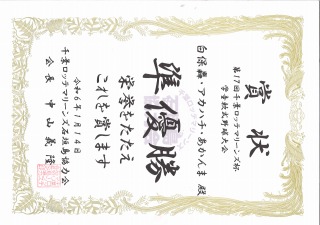 賞状
第17回千葉ロッテマリーンズ杯
学童軟式野球大会
準優勝
白保・アカハチ・あかんま 殿
栄誉をたたえ
これを賞します
令和6年1月14日
千葉ロッテマリーンズ石垣島協力会
会長 中山義隆